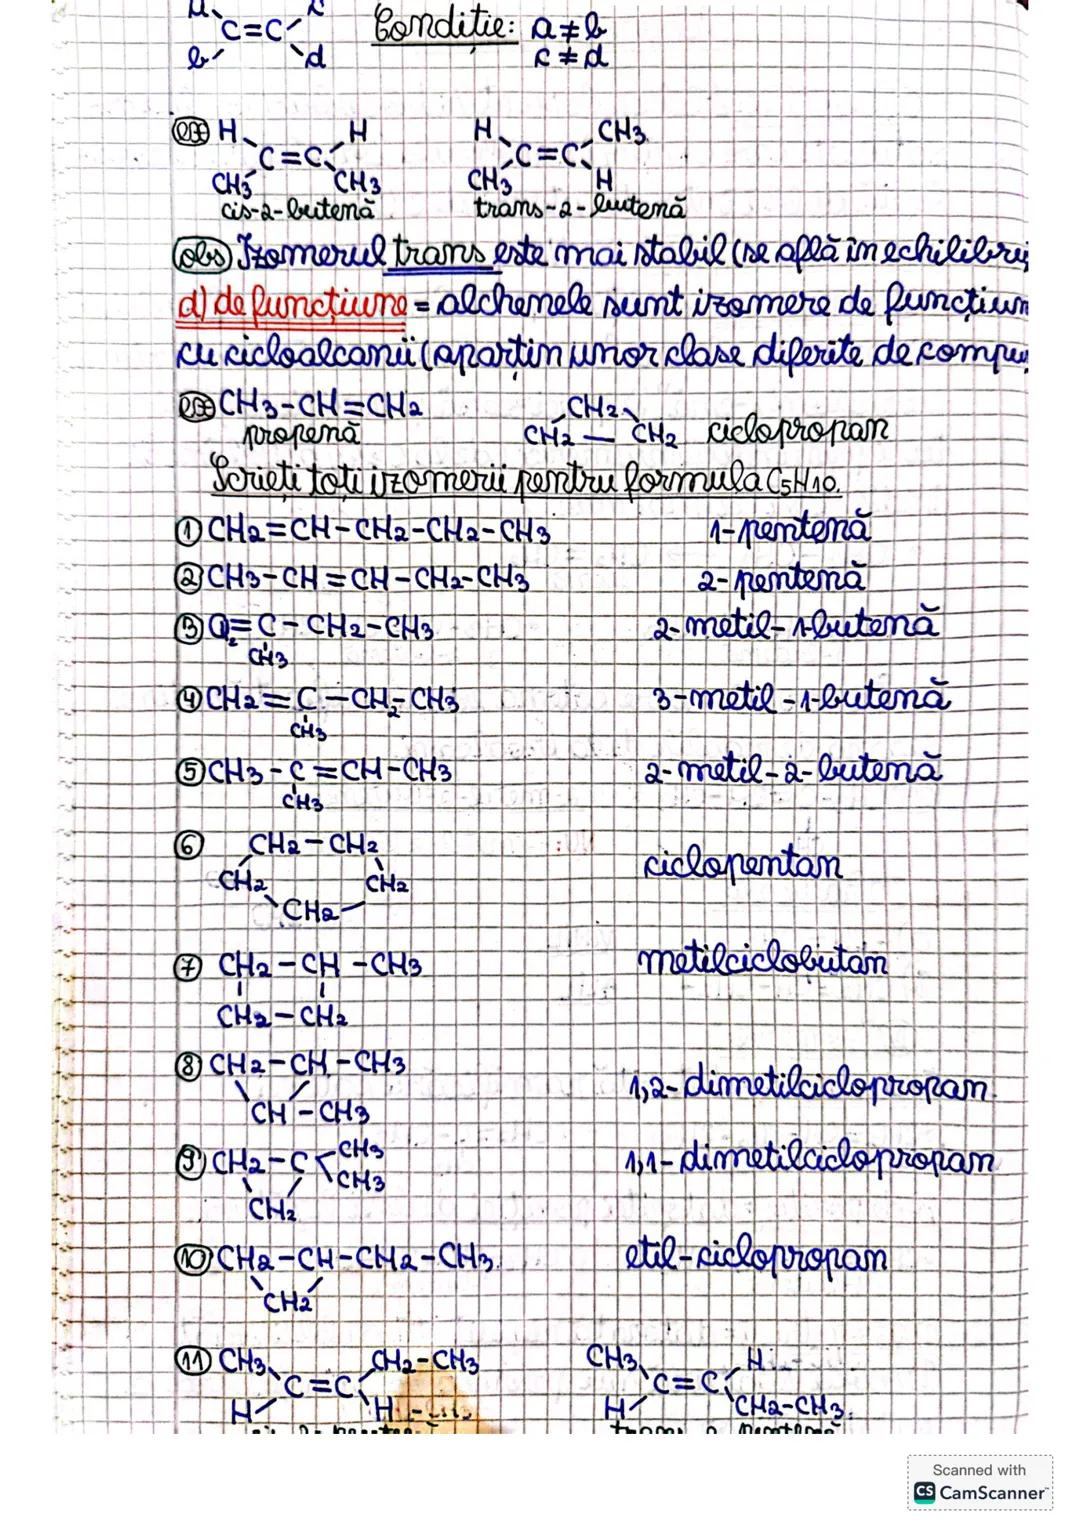 C=C
b d
Condiție: a≠b
c≠d
ex H H H CH3
C=C C=C
CH3 CH3 CH3 H
cis-2-butenă trans-2-butenă
obs Izomerul trans este mai stabil (se află în echilibru
d) de funcțiune = alchenele sunt izomere de funcțiun
cu cicloalcanii (aparțin unor clase diferite de compu
ex CH3-CH=CH2 CH2
propenă CH2 — CH2 ciclopropan
Scrieți toți izomerii pentru formula C5H10.
① CH2=CH-CH2-CH2-CH3 1-pentenă
② CH3-CH=CH-CH2-CH3 2-pentenă
③ =C-CH2-CH3 2-metil-1-butenă
CH3
④ CH2=C-CH2-CH3 3-metil-1-butenă
CH3
⑤ CH3-C=CH-CH3 2-metil-2-butenă
CH3
⑥ CH2-CH2
CH2 CH2 ciclopentan
CH2
⑦ CH2-CH-CH3 metilciclobutan
CH2-CH2
⑧ CH2-CH-CH3 1,2-dimetilciclopropan
CH-CH3
⑨ CH2-C CH3 1,1-dimetilciclopropan
CH3
CH2
⑩ CH2-CH-CH2-CH3 etil-ciclopropan
CH2
⑪ CH3 CH2-CH3 CH3 H
C=C C=C
H H H CH2-CH3
Scanned with
CS CamScanner